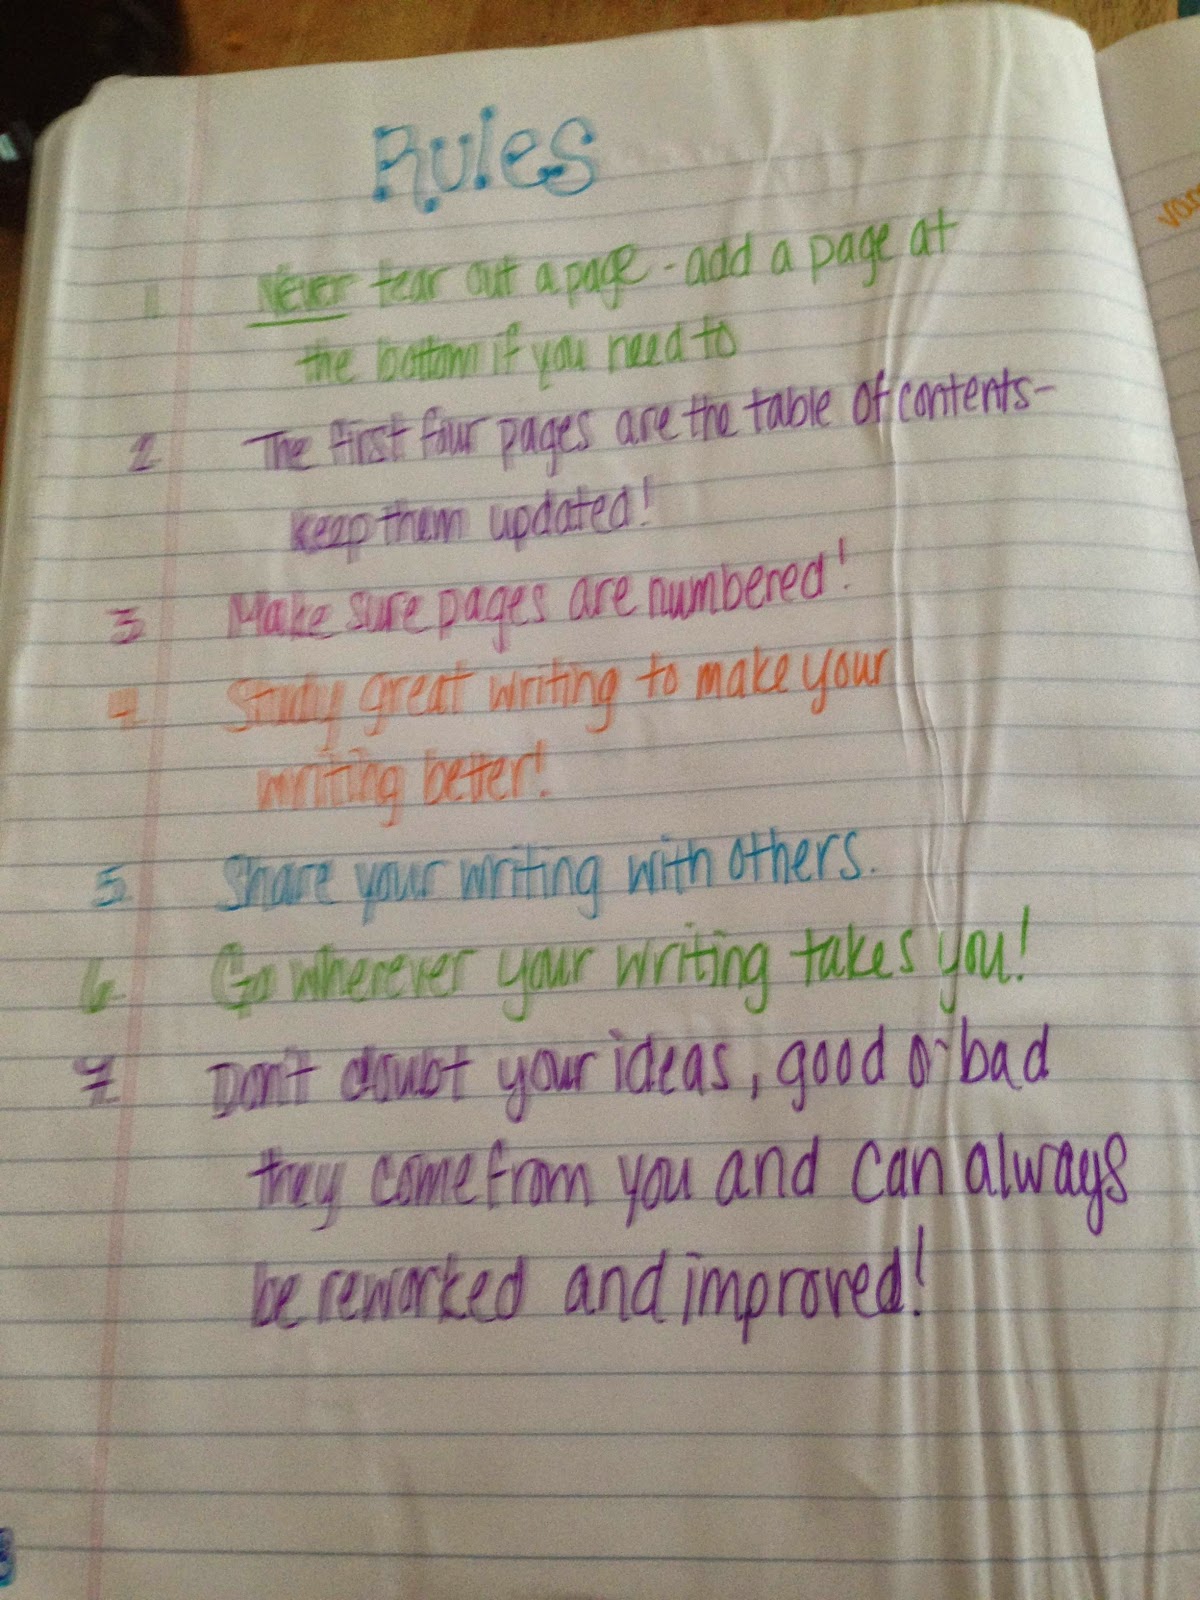 Rules
1 Never tear out a page - add a page at
the bottom if you need to
2 The first four pages are the table of contents-
keep them updated!
3 Make sure pages are numbered!
4 Study great writing to make your
writing better!
5 Share your writing with others.
6 Go wherever your writing takes you!
7 Don't doubt your ideas, good or bad
they come from you and can always
be reworked and improved!